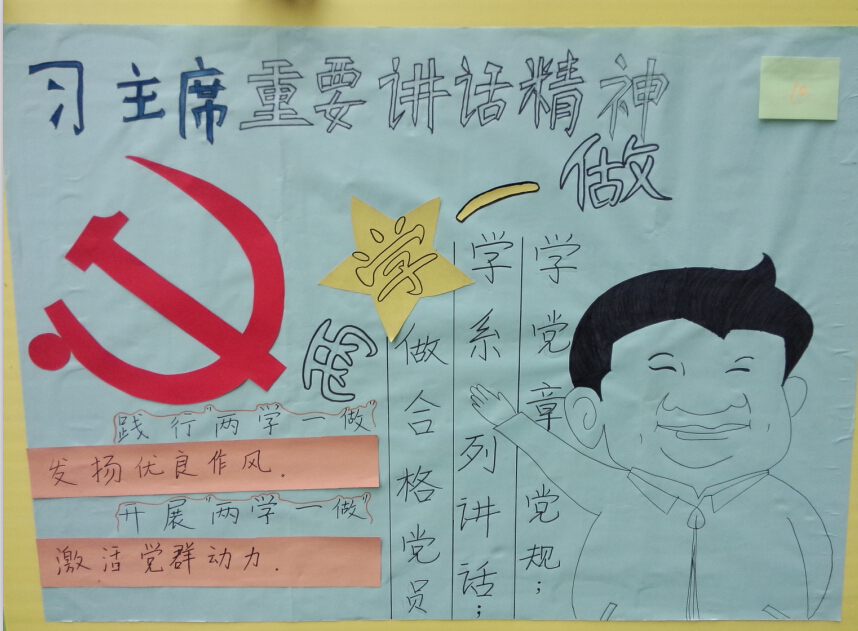 习主席重要讲话精神
两学一做
学党章党规；
学系列讲话；
做合格党员
践行两学一做
发扬优良作风.
开展“两学一做”
激活党群动力.